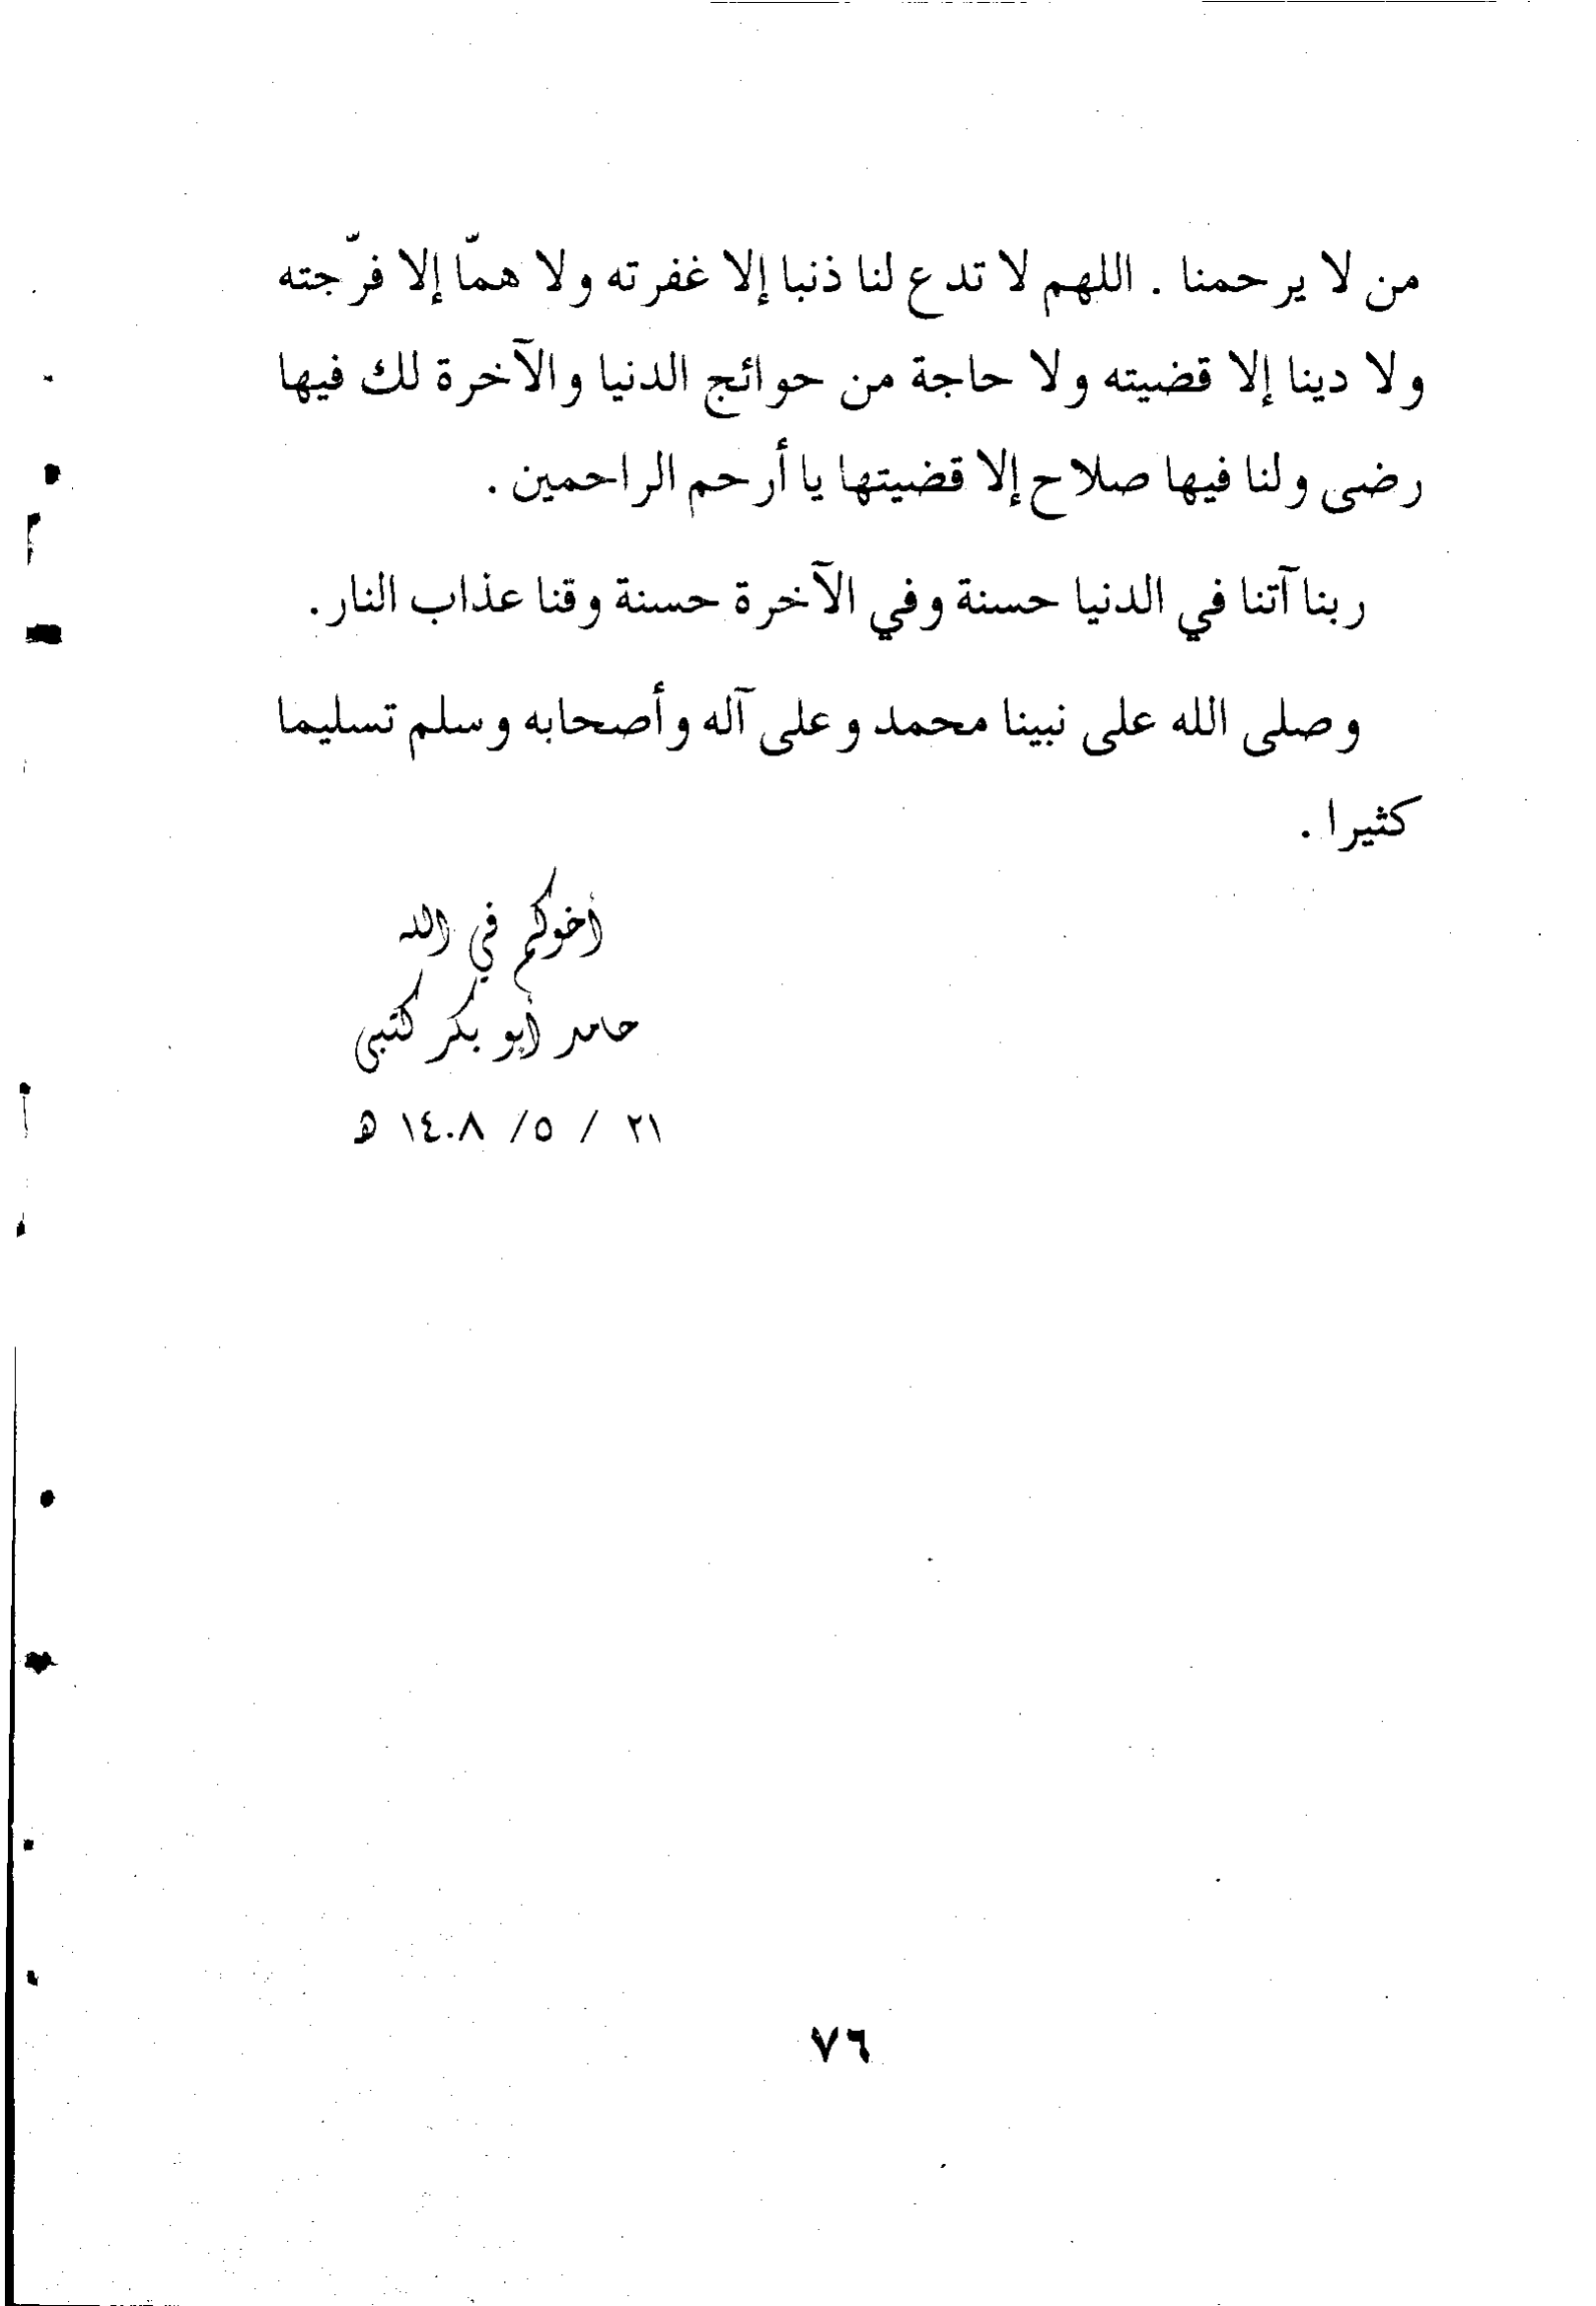 من لا يرحمنا . اللهم لا تدع لنا ذنبا إلا غفرته ولا همّا إلا فرّجته
ولا دينا إلا قضيته ولا حاجة من حوائج الدنيا والآخرة لك فيها
رضى ولنا فيها صلاح إلا قضيتها يا أرحم الراحمين .
ربنا آتنا في الدنيا حسنة وفي الآخرة حسنة وقنا عذاب النار.
وصلى الله على نبينا محمد وعلى آله وأصحابه وسلم تسليما
كثيرا .
أخوكم في الله
حامد أبو بكر كتبي
٢١ / ٥/ ١٤٠٨ هـ
٧٦